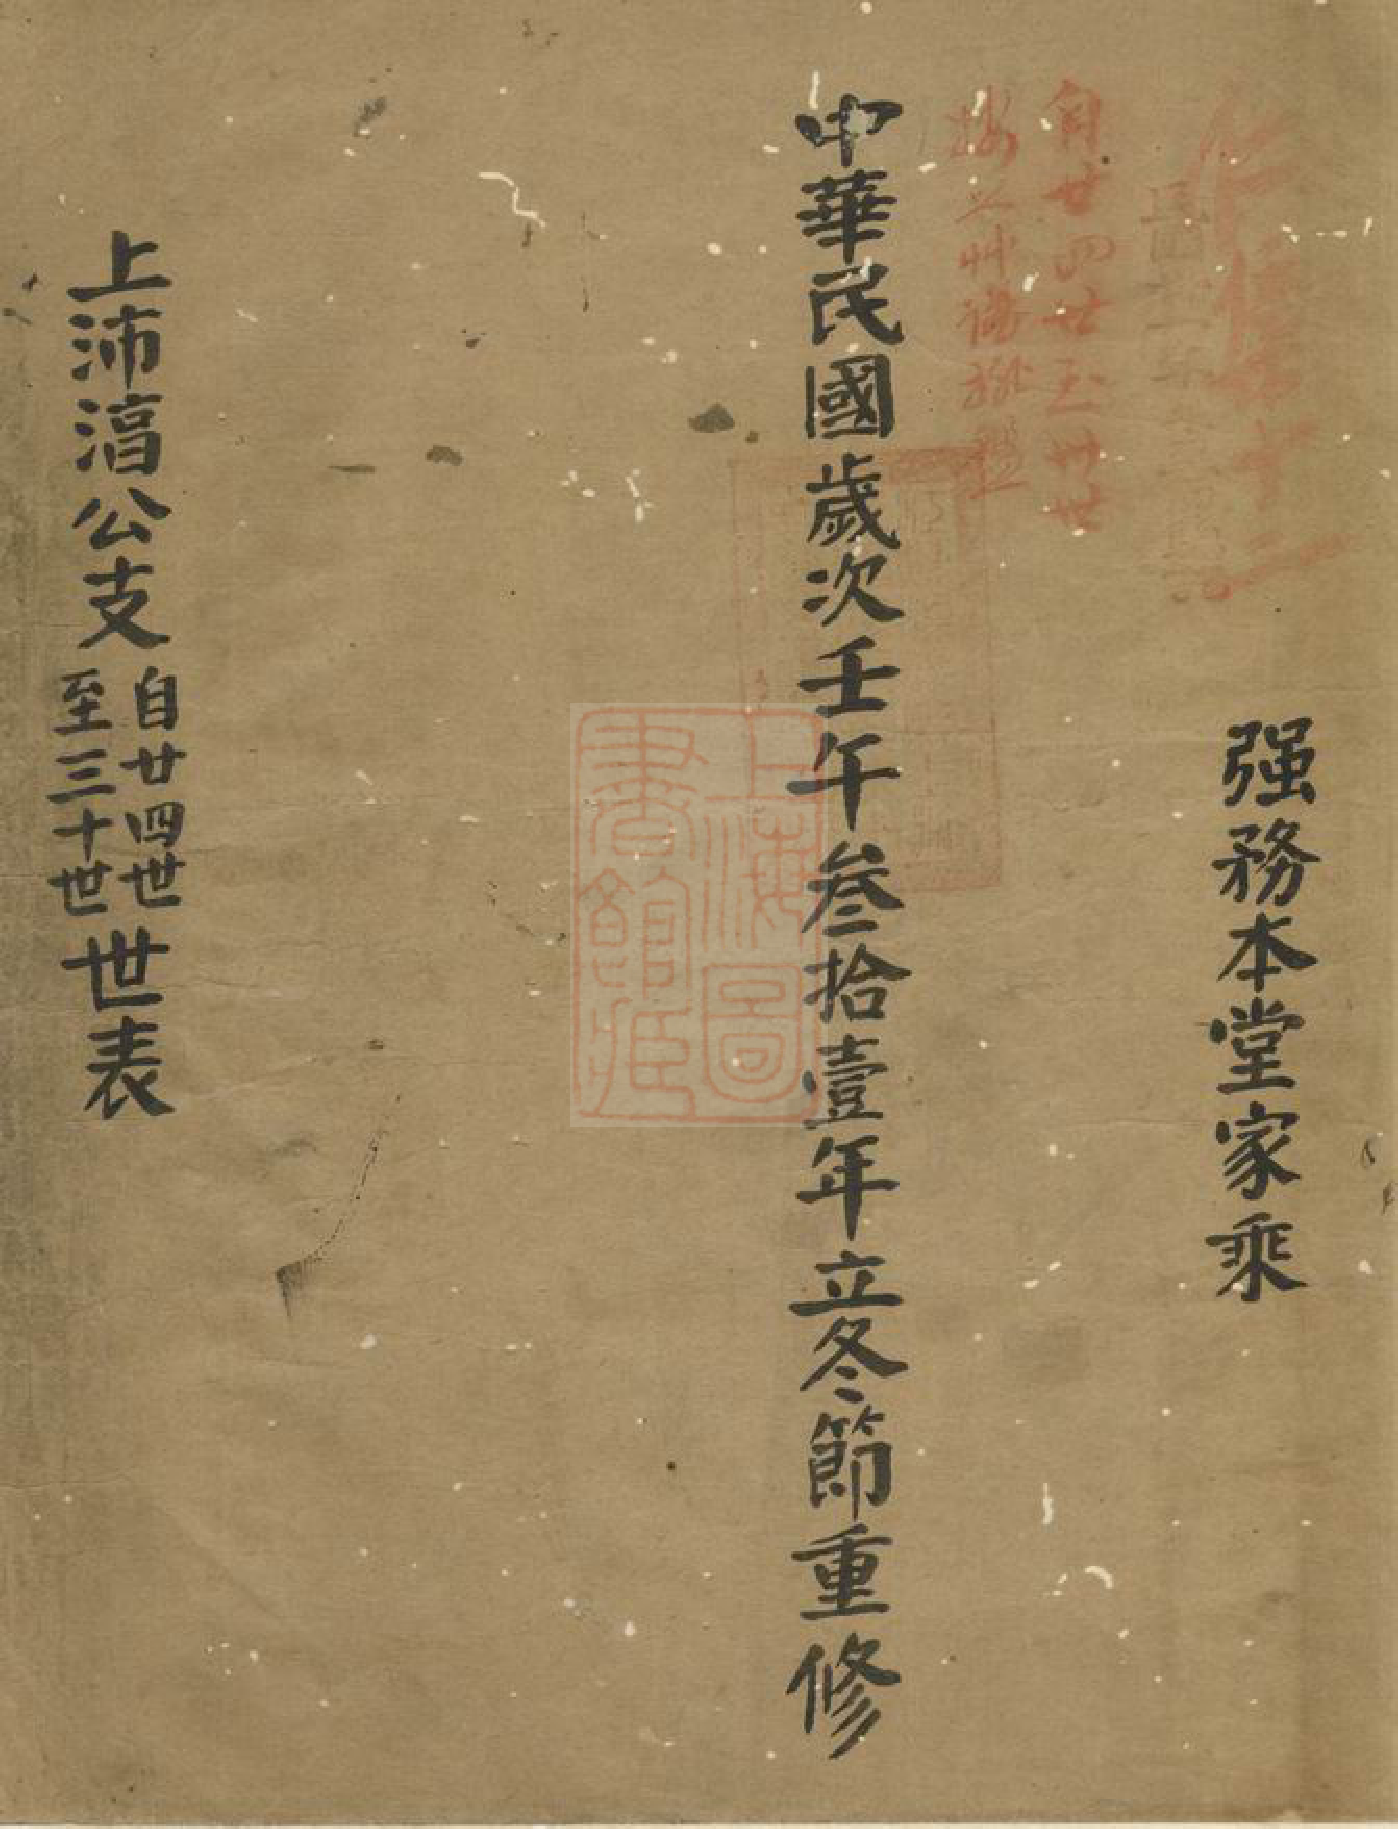 强務本堂家乘
自廿四廿至卅世
中華民國歲次壬午叁拾壹年立冬節重修
上海圖書館藏
上沛湻公支
自廿四世
至三十世
世表